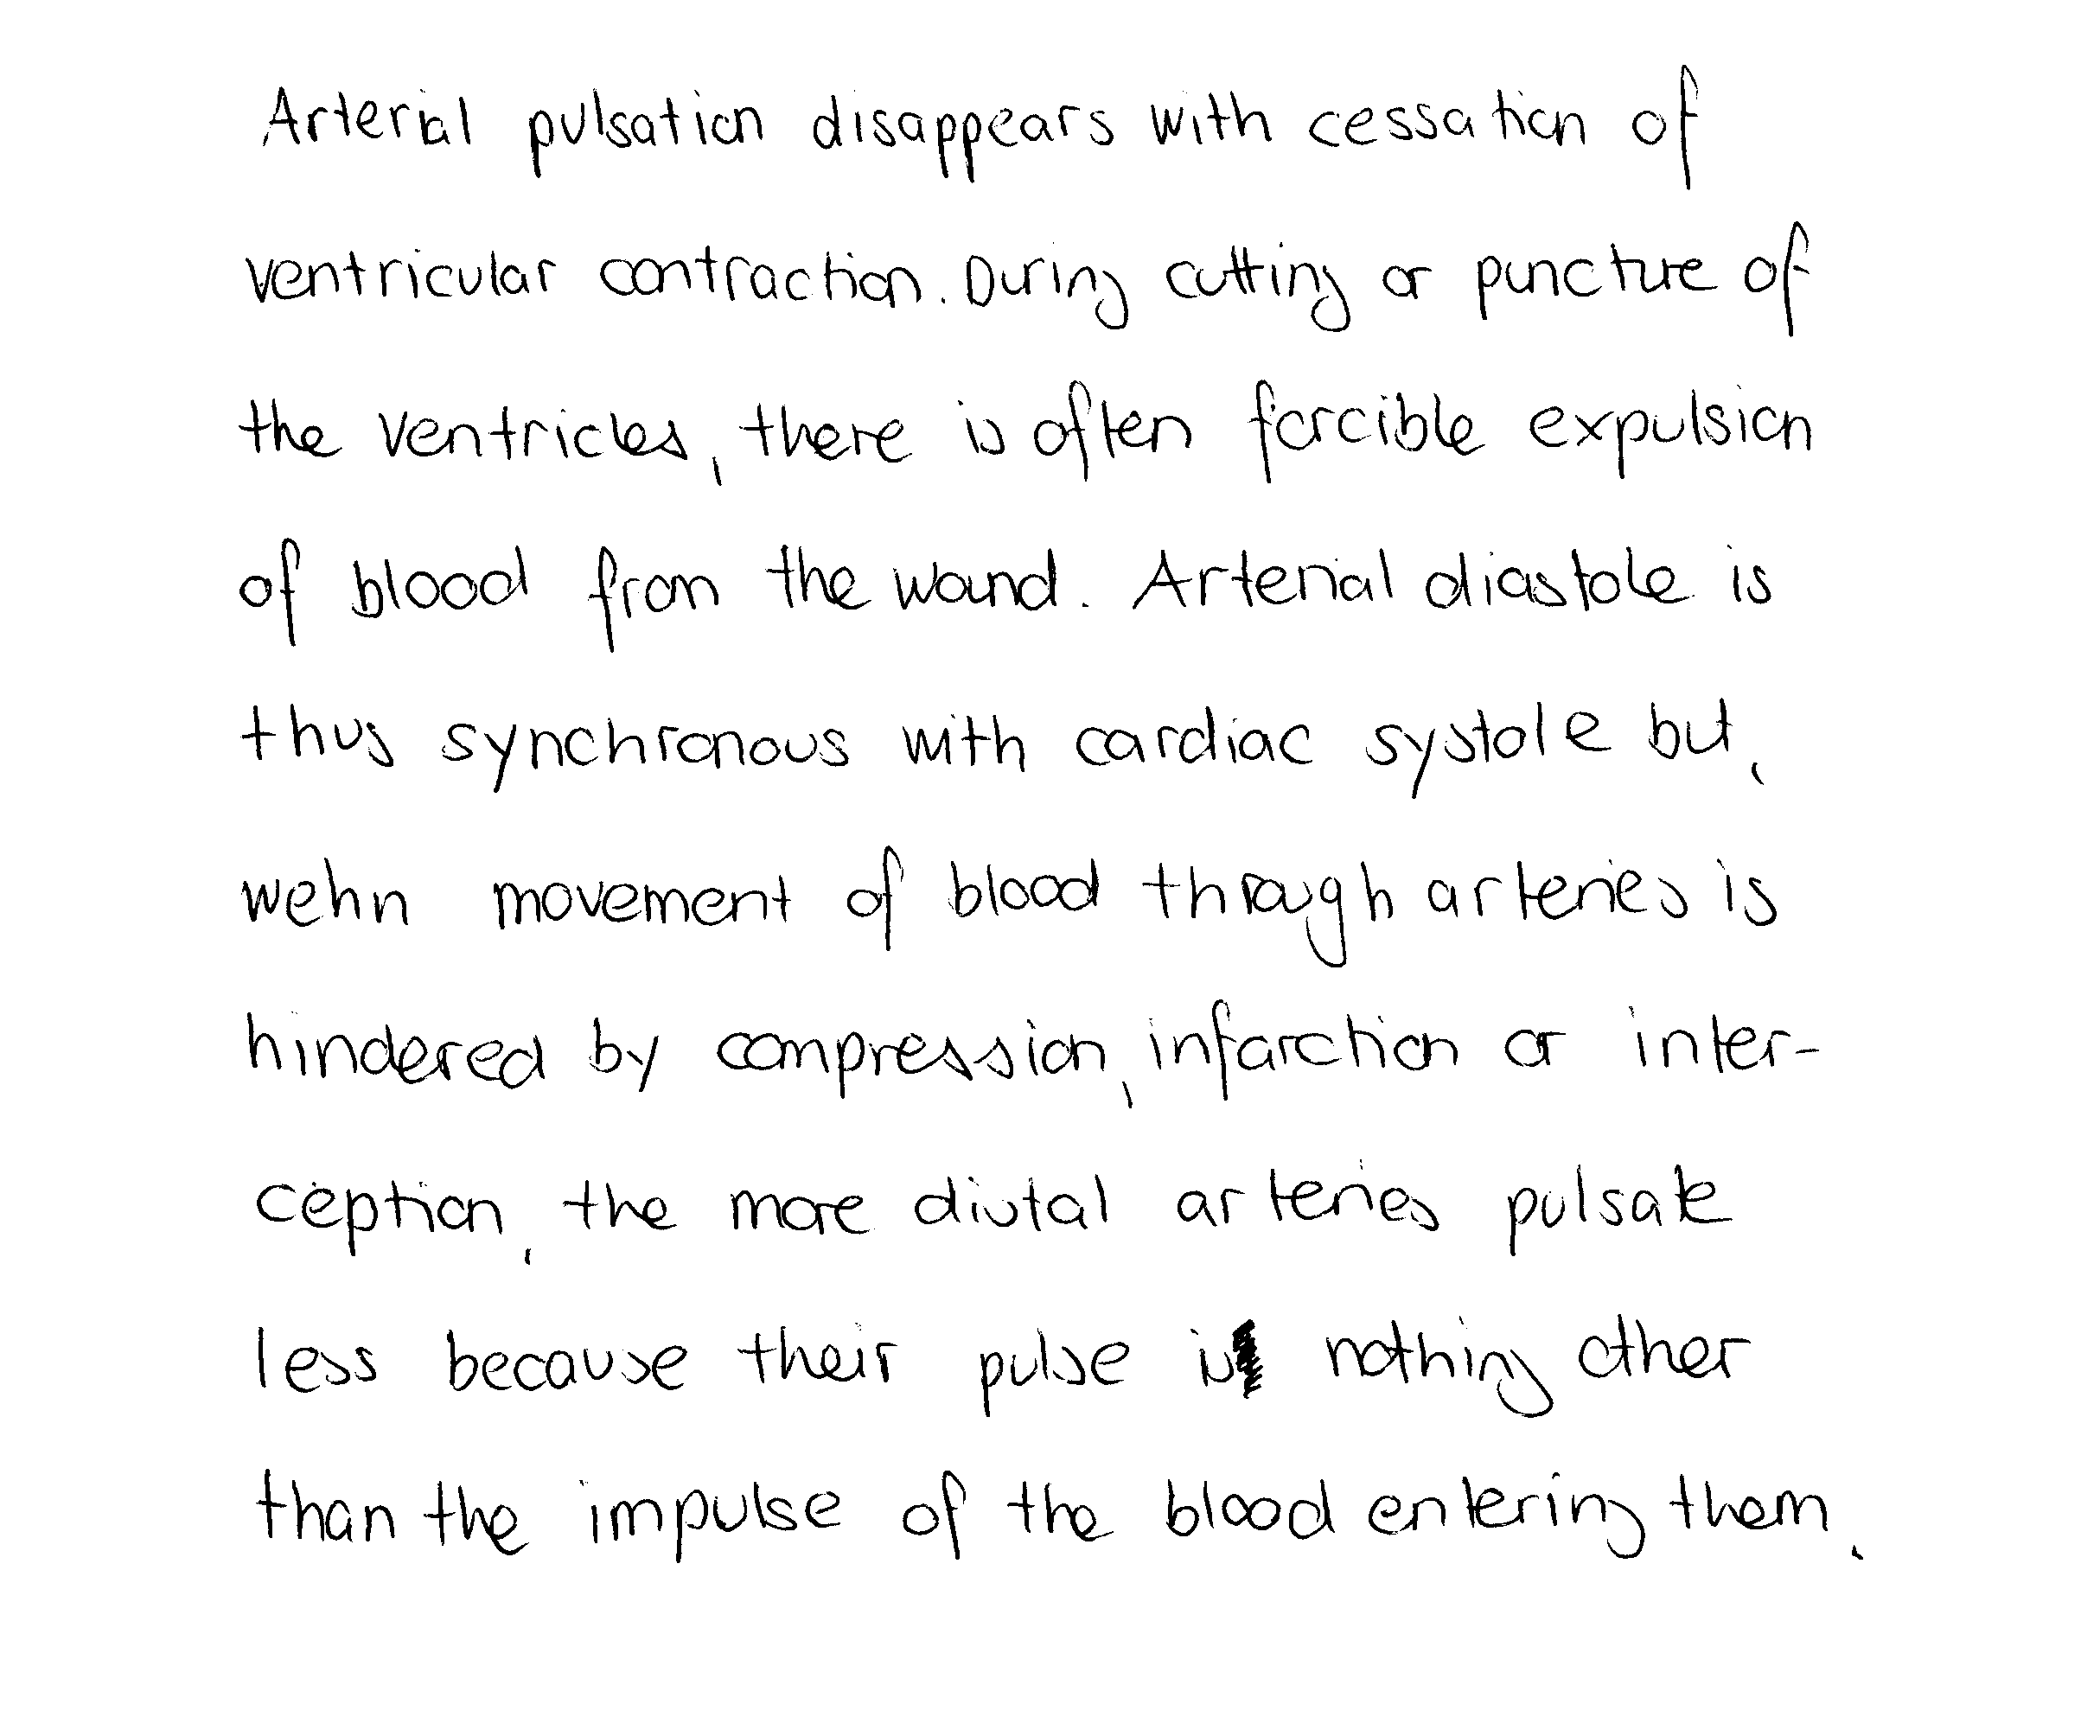 Arterial pulsation disappears with cessation of
ventricular contraction. During cutting or puncture of
the ventricles, there is often forcible expulsion
of blood from the wound. Arterial diastole is
thus synchronous with cardiac systole but,
wehn movement of blood through arteries is
hindered by compression, infarction or inter-
ception, the more distal arteries pulsate
less because their pulse is nothing other
than the impulse of the blood entering them.